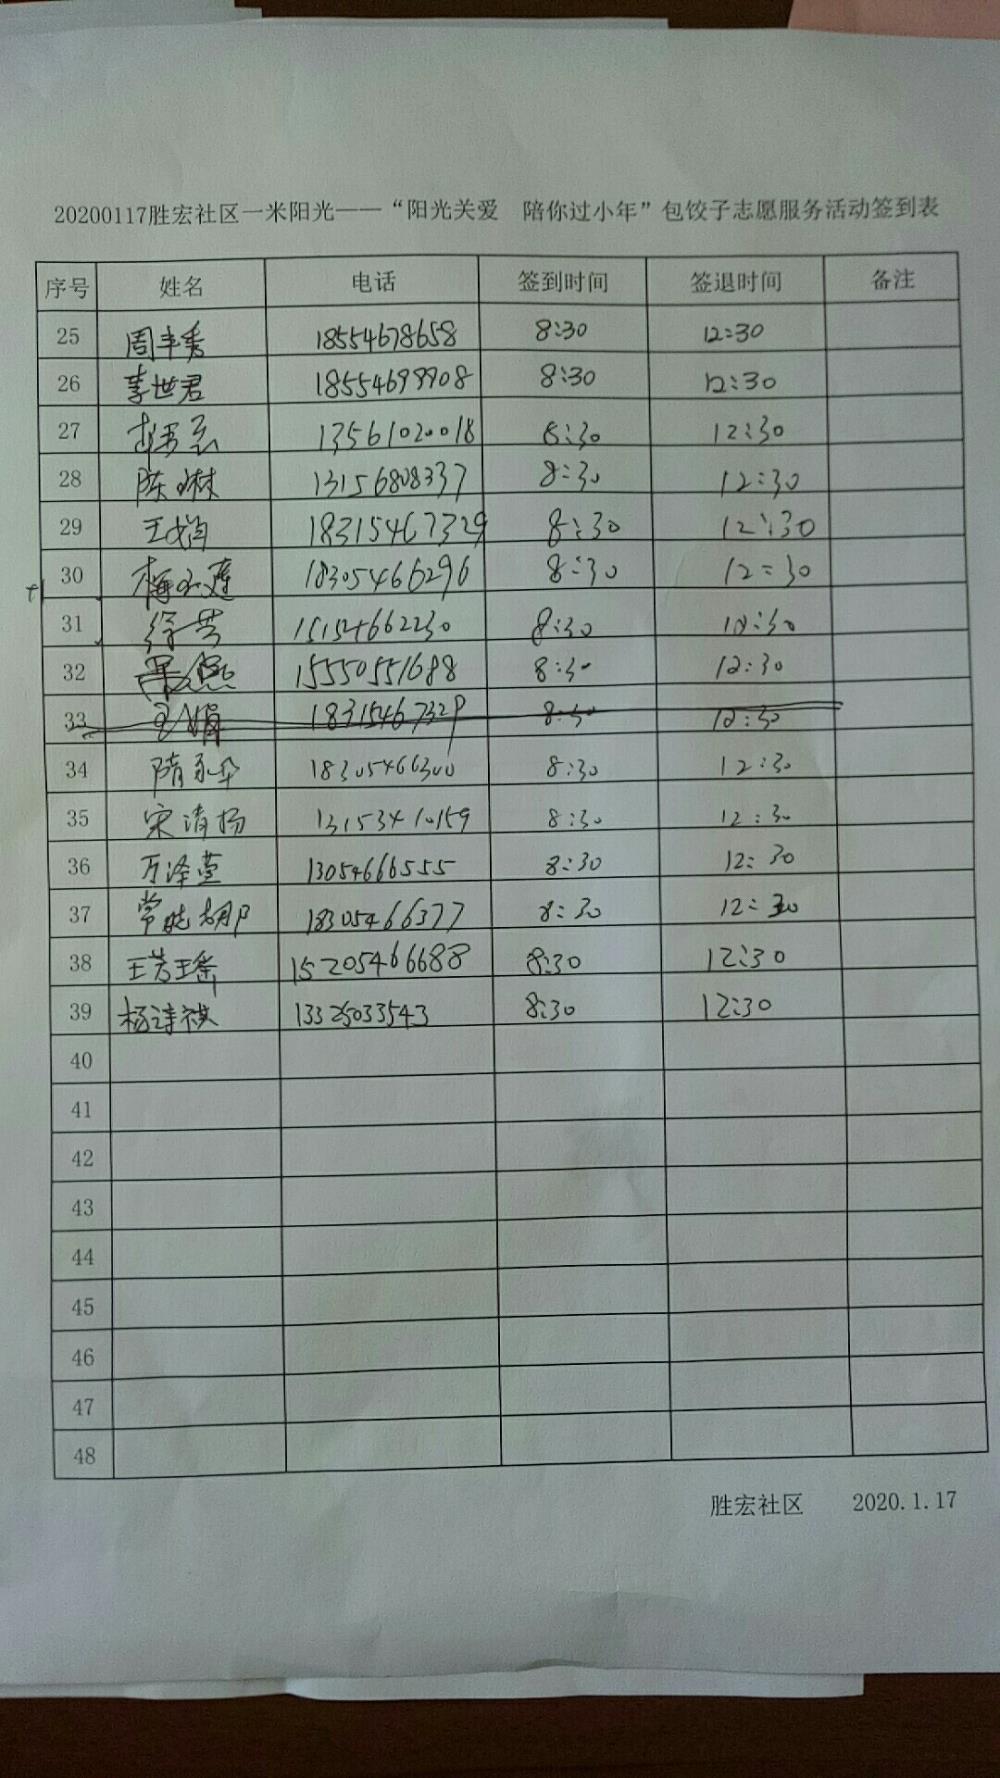 20200117胜宏社区一米阳光——“阳光关爱 陪你过小年”包饺子志愿服务活动签到表
序号 姓名 电话 签到时间 签退时间 备注
25 周丰秀 18554678658 8:30 12:30
26 李世君 18554699908 8:30 12:30
27 13561020018 8:30 12:30
28 陈琳 13156808337 8:30 12:30
29 王娟 18315467329 8:30 12:30
30 梅永莲 18305466296 8:30 12:30
31 徐芸 15154662230 8:30 12:30
32 15550551688 8:30 12:30
33 王娟 18315467329 8:30 12:30
34 隋永华 18305466300 8:30 12:30
35 宋清扬 13153410159 8:30 12:30
36 万泽萱 13054666555 8:30 12:30
37 常晓娜 18305466377 8:30 12:30
38 王芳瑶 15205466688 8:30 12:30
39 杨诗祺 13325033543 8:30 12:30
40
41
42
43
44
45
46
47
48
胜宏社区 2020.1.17